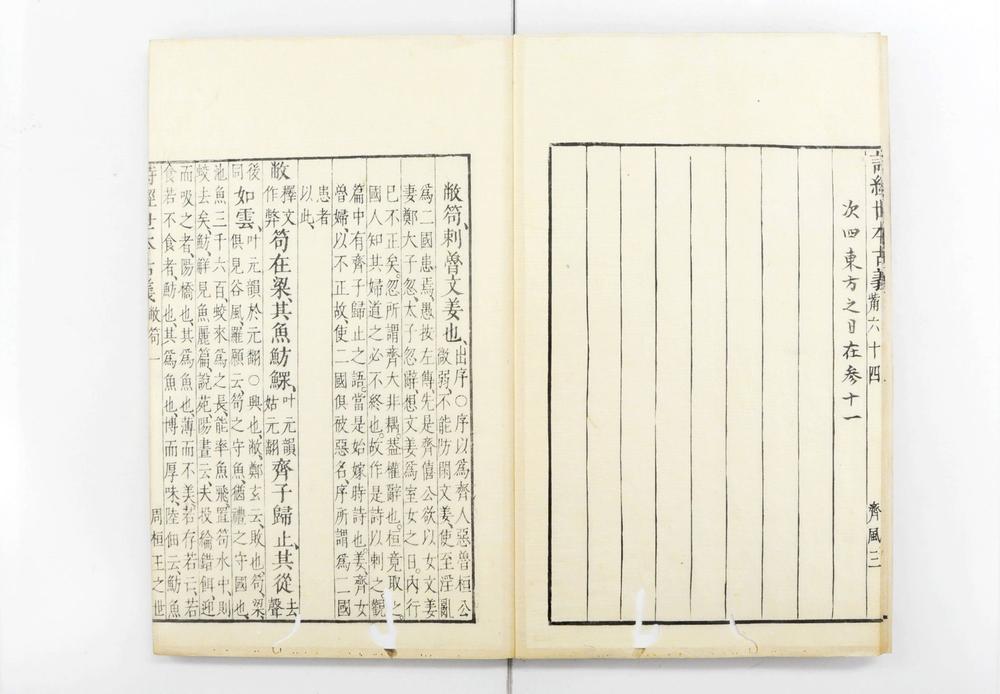 詩經世本古義
六十四
齊風三
次四東方之日在参十一
敝笱、刺魯文姜也、出序○序以為齊人惡魯桓公
微弱、不能防閑文姜、使至淫亂
為二國患焉、愚按左傳先是齊僖公欲以女文姜
妻鄭大子忽、太子忽辭、想文姜為室女之日、內行
已不正矣。忽所謂齊大非耦葢權辭也。桓竟取之。
國人知其婦道之必不終也。故作是詩以刺之。觀
篇中有齊子歸止之語。當是始嫁時詩也。姜、齊女
魯婦、以不正故、使二國俱被惡名、序所謂為二國
患者
以此、
敝釋文作弊笱在梁、其魚魴鰥、叶元韻姑元翻齊子歸止、其從去聲
後同如雲、叶元韻於元翻○興也、敝、鄭玄云、敗也、笱、梁、
俱見谷風、羅願云、笱之守魚、猶禮之守國也、
池魚三千六百、蛟來為之長、能率魚飛、置笱水中、則
蛟去矣、魴、觧見魚麗篇、說苑、陽晝云、夫扱綸錯餌、迎
而吸之者、陽橋也、其為魚也、薄而不美、若存若云、若
食若不食者、魴也、其為魚也、博而厚味、陸佃云魴魚
詩經世本古義 敝笱一 周桓王之世